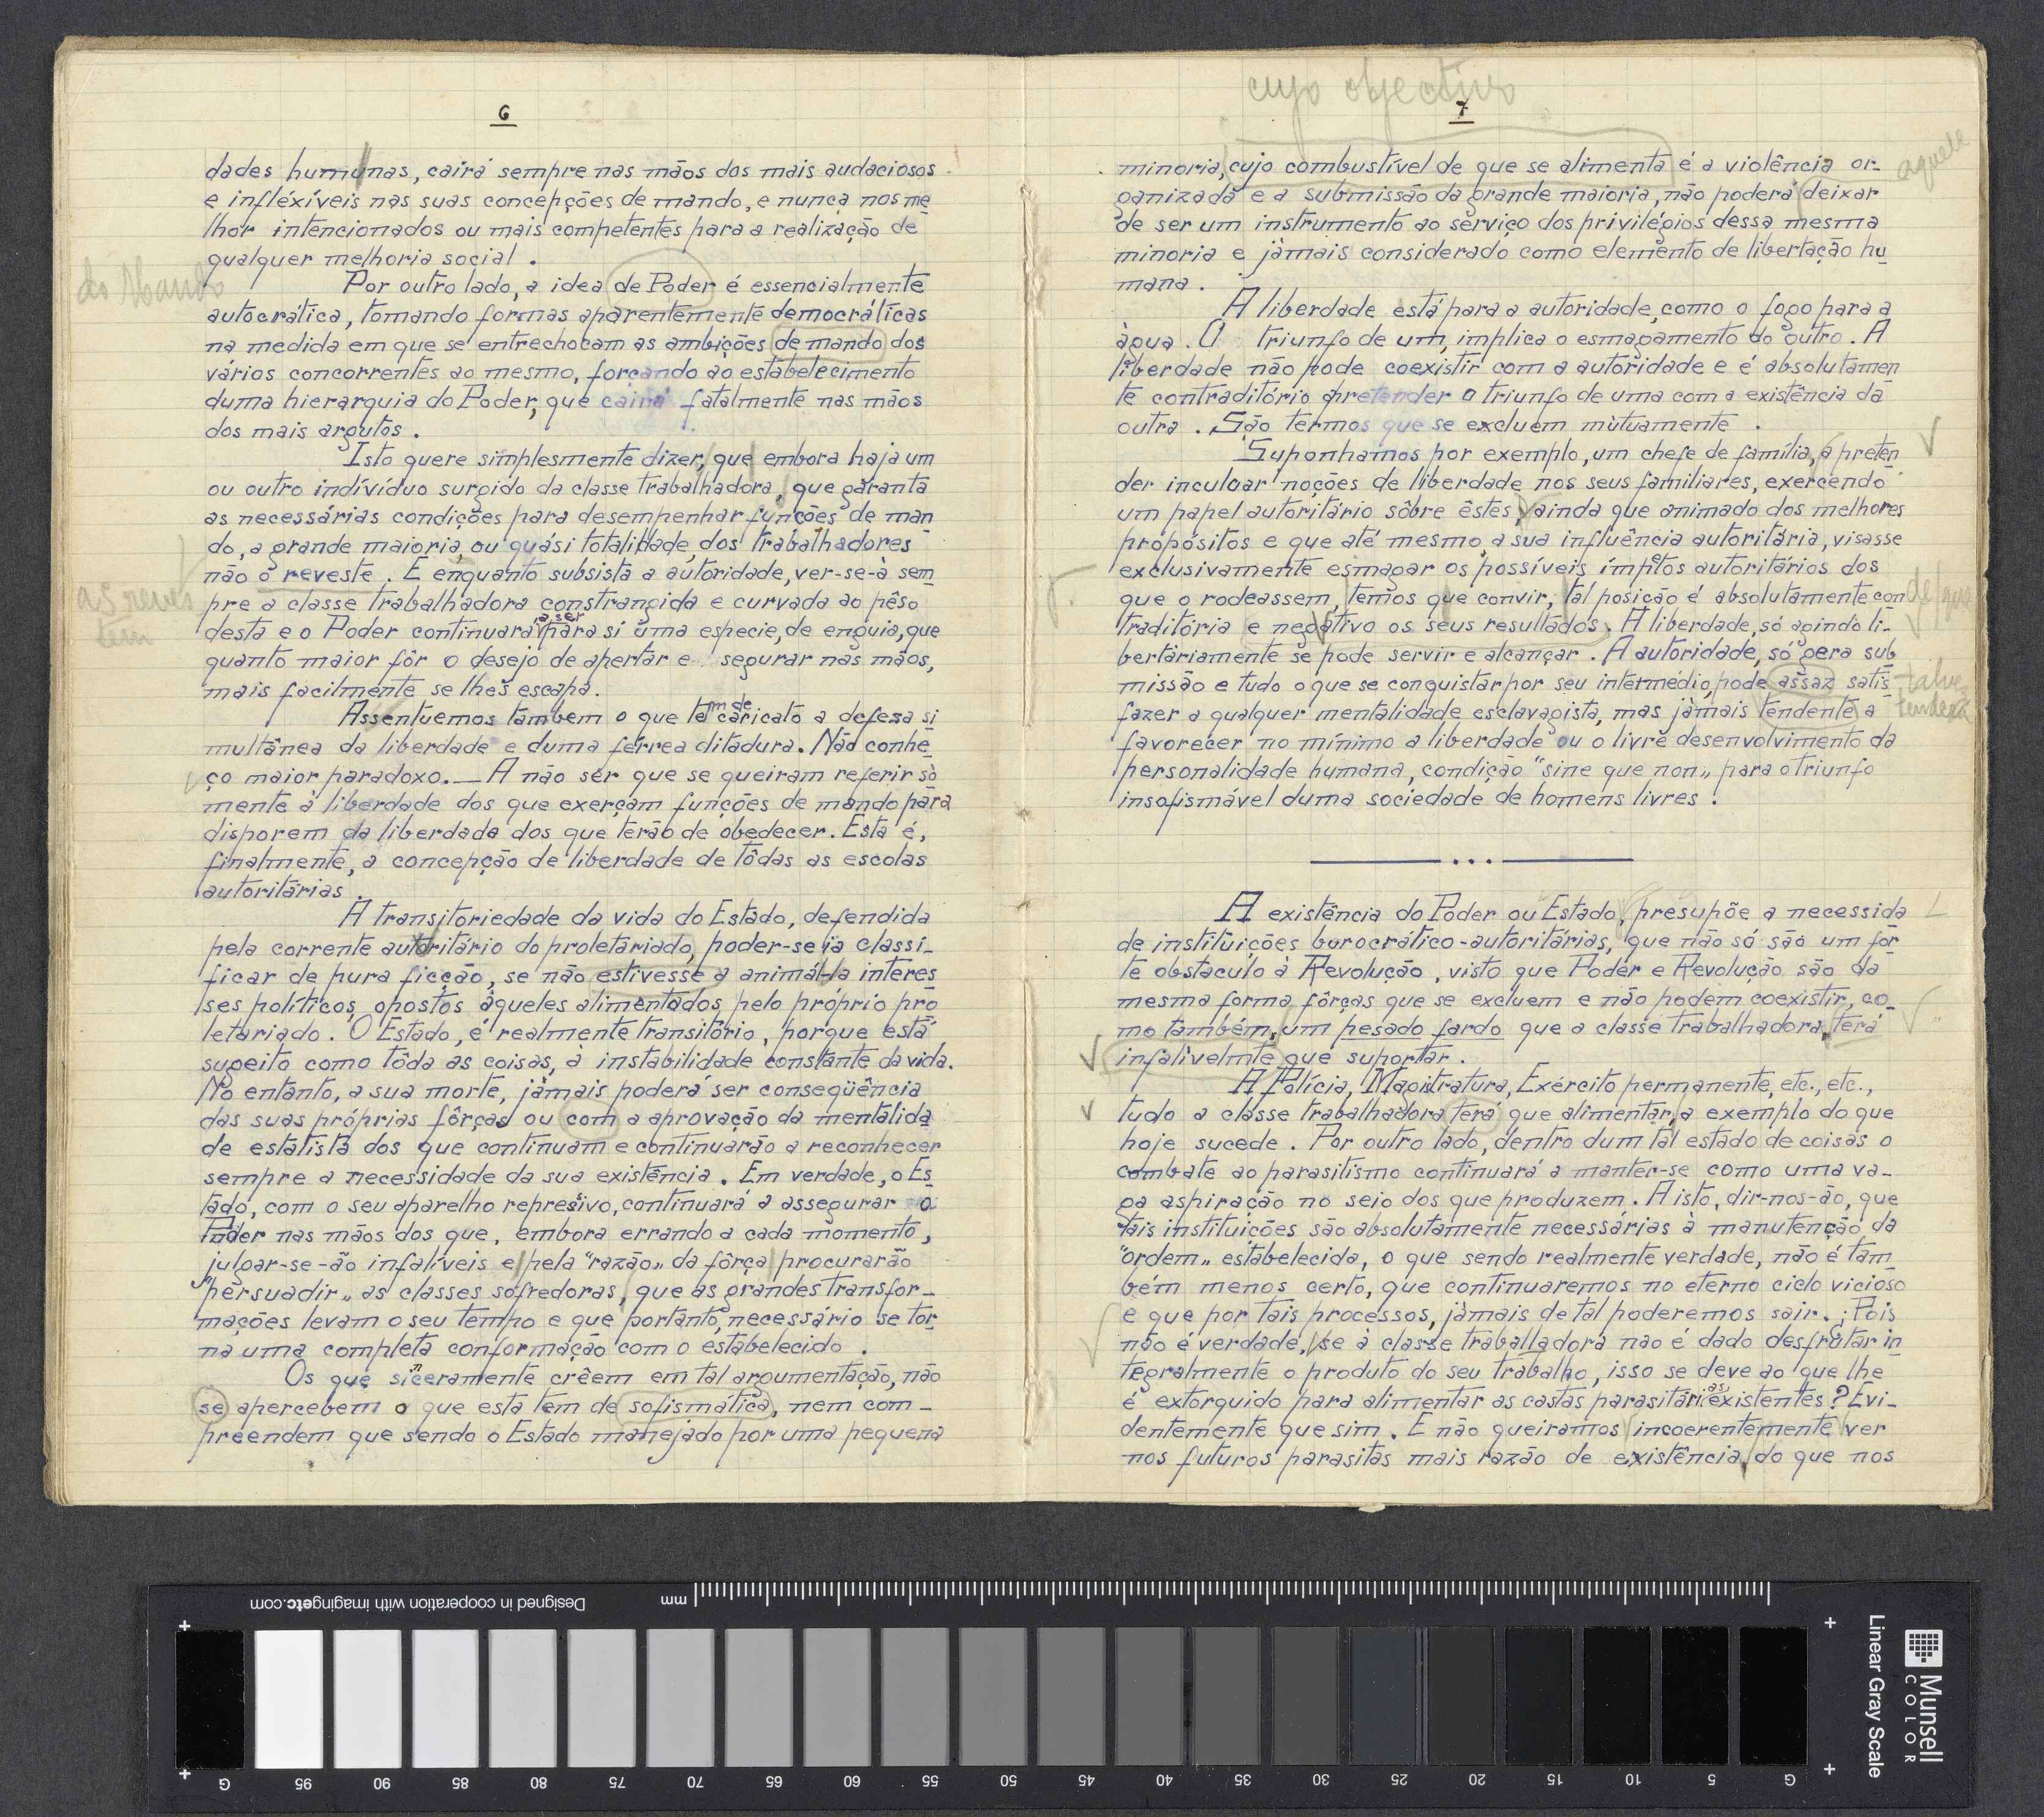 6
dades humanas, cairá sempre nas mãos dos mais audaciosos
e infléxíveis nas suas concepções de mando, e nunca nos me
lhor intencionados ou mais competentes para a realização de
qualquer melhoria social.
do Mando
Por outro lado, a idea de Poder é essencialmente
autocrática, tomando formas aparentemente democráticas
na medida em que se entrechocam as ambições de mando dos
vários concorrentes ao mesmo, forçando ao estabelecimento
duma hierarquia do Poder, que cairá fatalmente nas mãos
dos mais argutos.
Isto quere simplesmente dizer, que embora haja um
ou outro indivíduo surgido da classe trabalhadora, que garanta
as necessárias condições para desempenhar funções de man
do, a grande maioria, ou quási totalidade, dos trabalhadores
não o reveste. E enquanto subsista a autoridade, ver-se-à sem
as reves
tem
pre a classe trabalhadora constrangida e curvada ao pêso
desta e o Poder continuará a ser para si uma especie, de enguia, que
quanto maior fôr o desejo de apertar e segurar nas mãos,
mais facilmente se lhes escapa.
Assentuemos tambem o que tem de caricato a defesa si
multânea da liberdade e duma férrea ditadura. Não conhe
ço maior paradoxo. — A não ser que se queiram referir sò
mente à liberdade dos que exerçam funções de mando pára
disporem da liberdada dos que terão de obedecer. Esta é,
finalmente, a concepção de liberdade de tôdas as escolas
autoritárias.
A transitoriedade da vida do Estado, defendida
pela corrente autoritário do proletariado, poder-se ïa classi-
ficar de pura ficção, se não estivesse a animá-la interes
ses políticos, opostos àqueles alimentados pelo próprio pro
letariado. O Estado, é realmente transitório, porque está
sugeito como tôda as coisas, à instabilidade constante da vida.
No entanto, a sua morte, jàmais poderá ser conseqüência
das suas próprias fôrças ou com a aprovação da mentalida
de estatista dos que continuam e continuarão a reconhecer
sempre a necessidade da sua existência. Em verdade, o Es
tado, com o seu aparelho represivo, continuará a assegurar o
Poder nas mãos dos que, embora errando a cada momento,
julgar-se-ão infalíveis e pela "razão" da fôrça procurarão
"persuadir" as classes sofredoras, que as grandes transfor-
mações levam o seu tempo e que portanto, necessário se tor
na uma completa conformação com o estabelecido.
Os que sinceramente crêem em tal argumentação, não
se apercebem o que esta tem de sofismática, nem com-
preendem que sendo o Estado manejado por uma pequena
cujo objectivo
7
minoria, cujo combustível de que se alimenta é a violência or-
aquele
ganizada e a submissão da grande maioria, não poderá deixar
de ser um instrumento ao serviço dos privilégios dessa mesma
minoria e jàmais considerado como elemento de libertação hu
mana.
A liberdade está para a autoridade, como o fogo para a
àgua. O triunfo de um, implica o esmagamento do outro. A
liberdade não pode coexistir com a autoridade e é absolutamen
te contraditório pretender o triunfo de uma com a existência da
outra. São termos que se excluem mùtuamente.
Suponhamos por exemplo, um chefe de família, a preten
der inculcar noções de liberdade nos seus familiares, exercendo
um papel autoritário sôbre êstes, ainda que animado dos melhores
própósitos e que até mesmo, a sua influência autoritária, visasse
exclusivamente esmagar os possíveis ímpetos autoritários dos
que o rodeassem, temos que convir, tal posição é absolutamente con
traditória e negativo os seus resultados. A liberdade, só agindo li-
bertàriamente se pode servir e alcançar. A autoridade, só gera sub
missão e tudo o que se conquistar por seu intermédio, pode assaz satis
talvez
fazer a qualquer mentalidade esclavagista, mas jàmais tendente a
favorecer no mínimo a liberdade ou o livre desenvolvimento da
personalidade humana, condição "sine que non" para o triunfo
insofismável duma sociedade de homens livres.
A existência do Poder ou Estado, presupõe a necessida
de instituições burocrático-autoritárias, que não só são um fòr
te obstaculo à Revolução, visto que Poder e Revolução são da
mesma forma, fôrças que se excluem e não podem coexistir, co-
mo também, um pesado fardo que a classe trabalhadora, terá
infalivelmte que suportar.
A Polícia, Magistratura, Exército permanente, etc., etc.,
tudo a classe trabalhadora terá que alimentar, a exemplo do que
hoje sucede. Por outro lado, dentro dum tal estado de coisas o
combate ao parasitismo continuará a manter-se como uma va-
ga aspiração no seio dos que produzem. A isto, dir-nos-ão, que
tais instituições são absolutamente necessárias à manutenção da
"ordem" estabelecida, o que sendo realmente verdade, não é tam
bém menos certo, que continuaremos no eterno ciclo vicioso
e que por tais processos, jàmais de tal poderemos sair. ¡Pois
não é verdade, se à classe traballadora nao é dado desfrutar in
tegralmente o produto do seu trabalho, isso se deve ao que lhe
é extorquido para alimentar as castas parasitárias existentes? Evi-
dentemente que sim. E não queiramos incoerentemente ver
nos futuros parasitas mais razão de existência do que nos
Designed in cooperation with imagingetc.com
mm
G 95 90 85 80 75 70 65 60 55 50 45 40 35 30 25 20 15 10 5 G
Linear Gray Scale
Munsell
COLOR